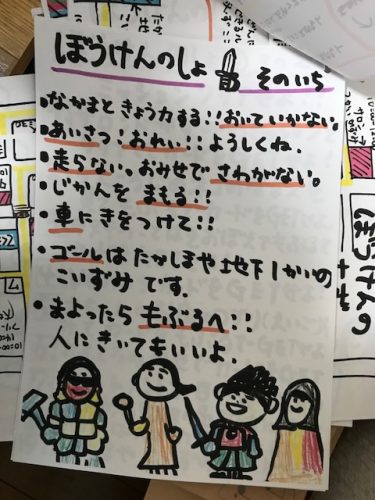 ぼうけんのしょ そのいち
・なかまときょう力する!!おいていかない。
・あいさつ!おれい!!ようしくね.
・走らない。おみせでさわがない。
・じかんをまもる!!
・車にきをつけて!!
・ゴールはたかしまや地下1かいの
こいずみです.
・まよったらもぶるへ!!
人にきいてもいいよ.
ぼうけんの